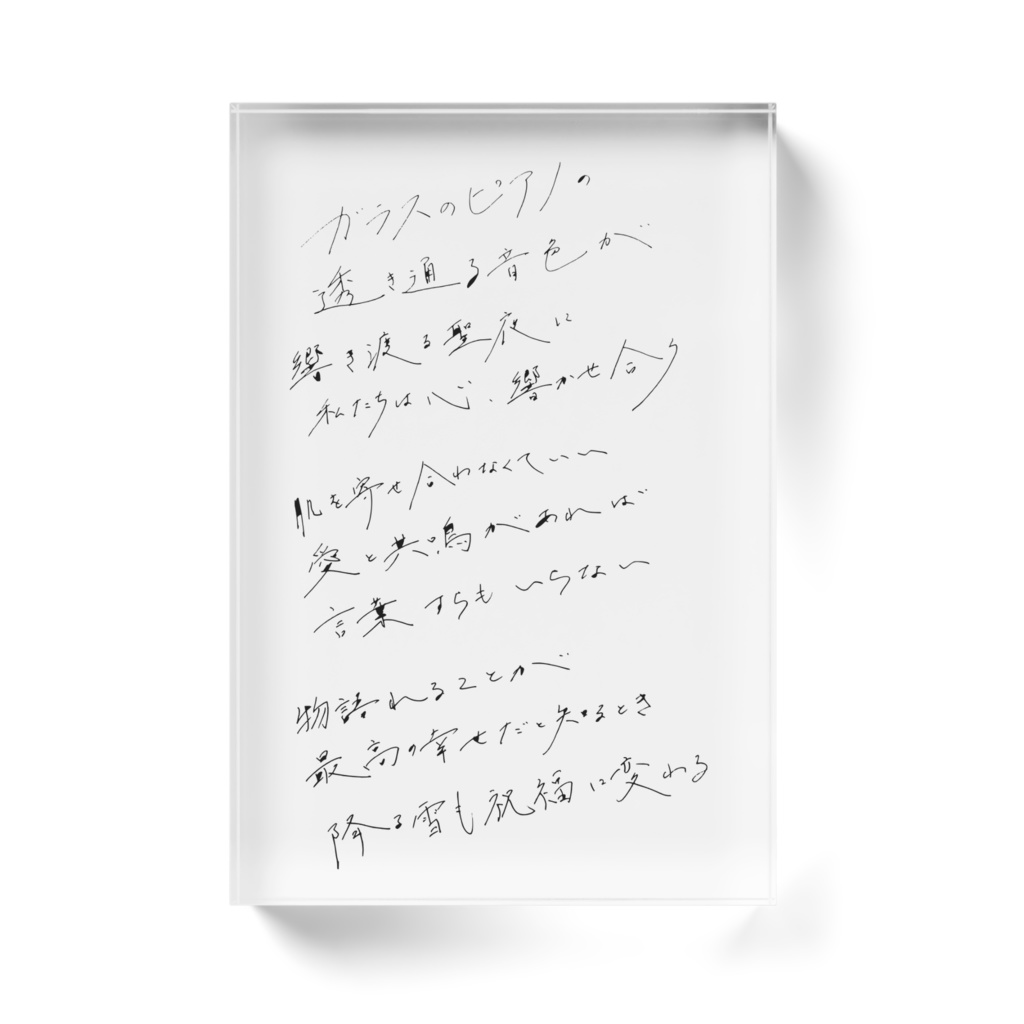 ガラスのピアノの
透き通る音色が
響き渡る聖夜に
私たちは心、響かせ合う
肌を寄せ合わなくていい
愛と共鳴があれば
言葉すらもいらない
物語れることが
最高の幸せだと知るとき
降る雪も祝福に変わる